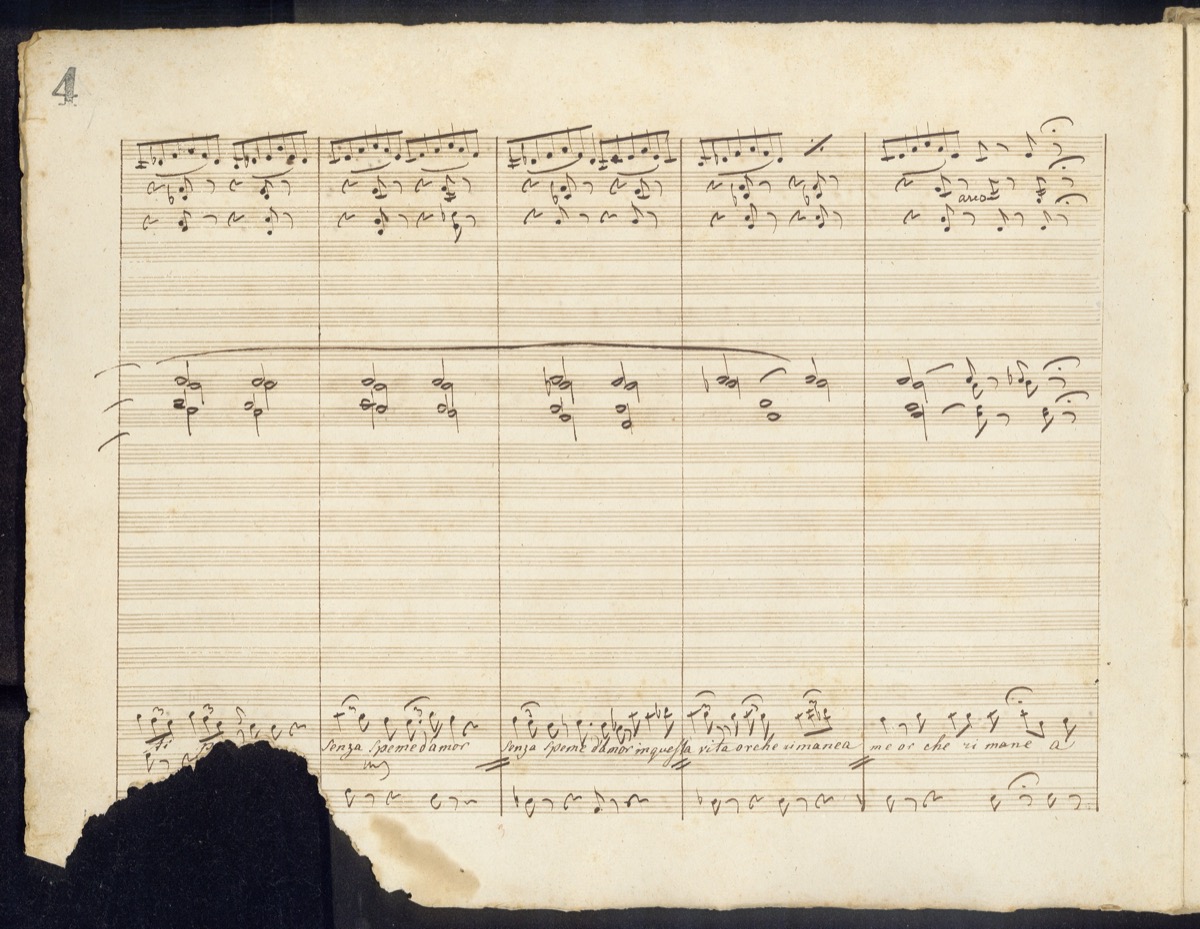 4
arco
senza speme damor senza speme damor in questa vita or che rimane a me or che rimane a